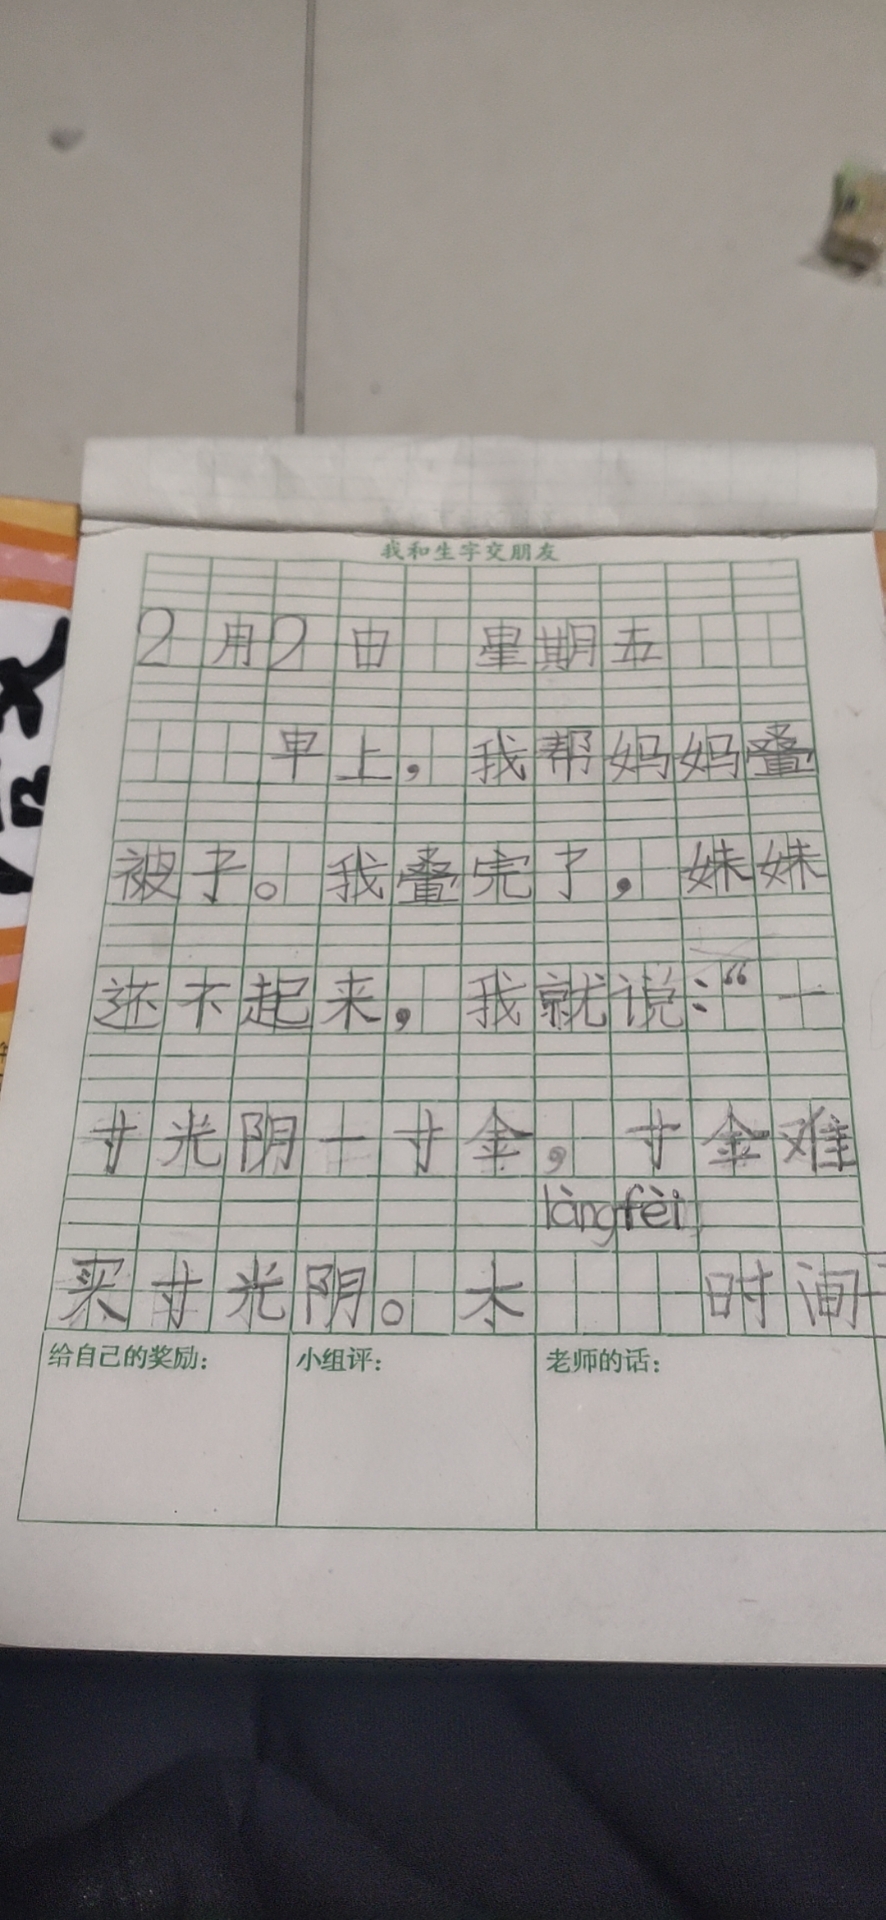 我和生字交朋友
2月2日 星期五
早上，我帮妈妈叠
被子。我叠完了，妹妹
还不起来，我就说：“一
寸光阴一寸金，寸金难
làng fèi
买寸光阴。木 时间
给自己的奖励： 小组评： 老师的话：